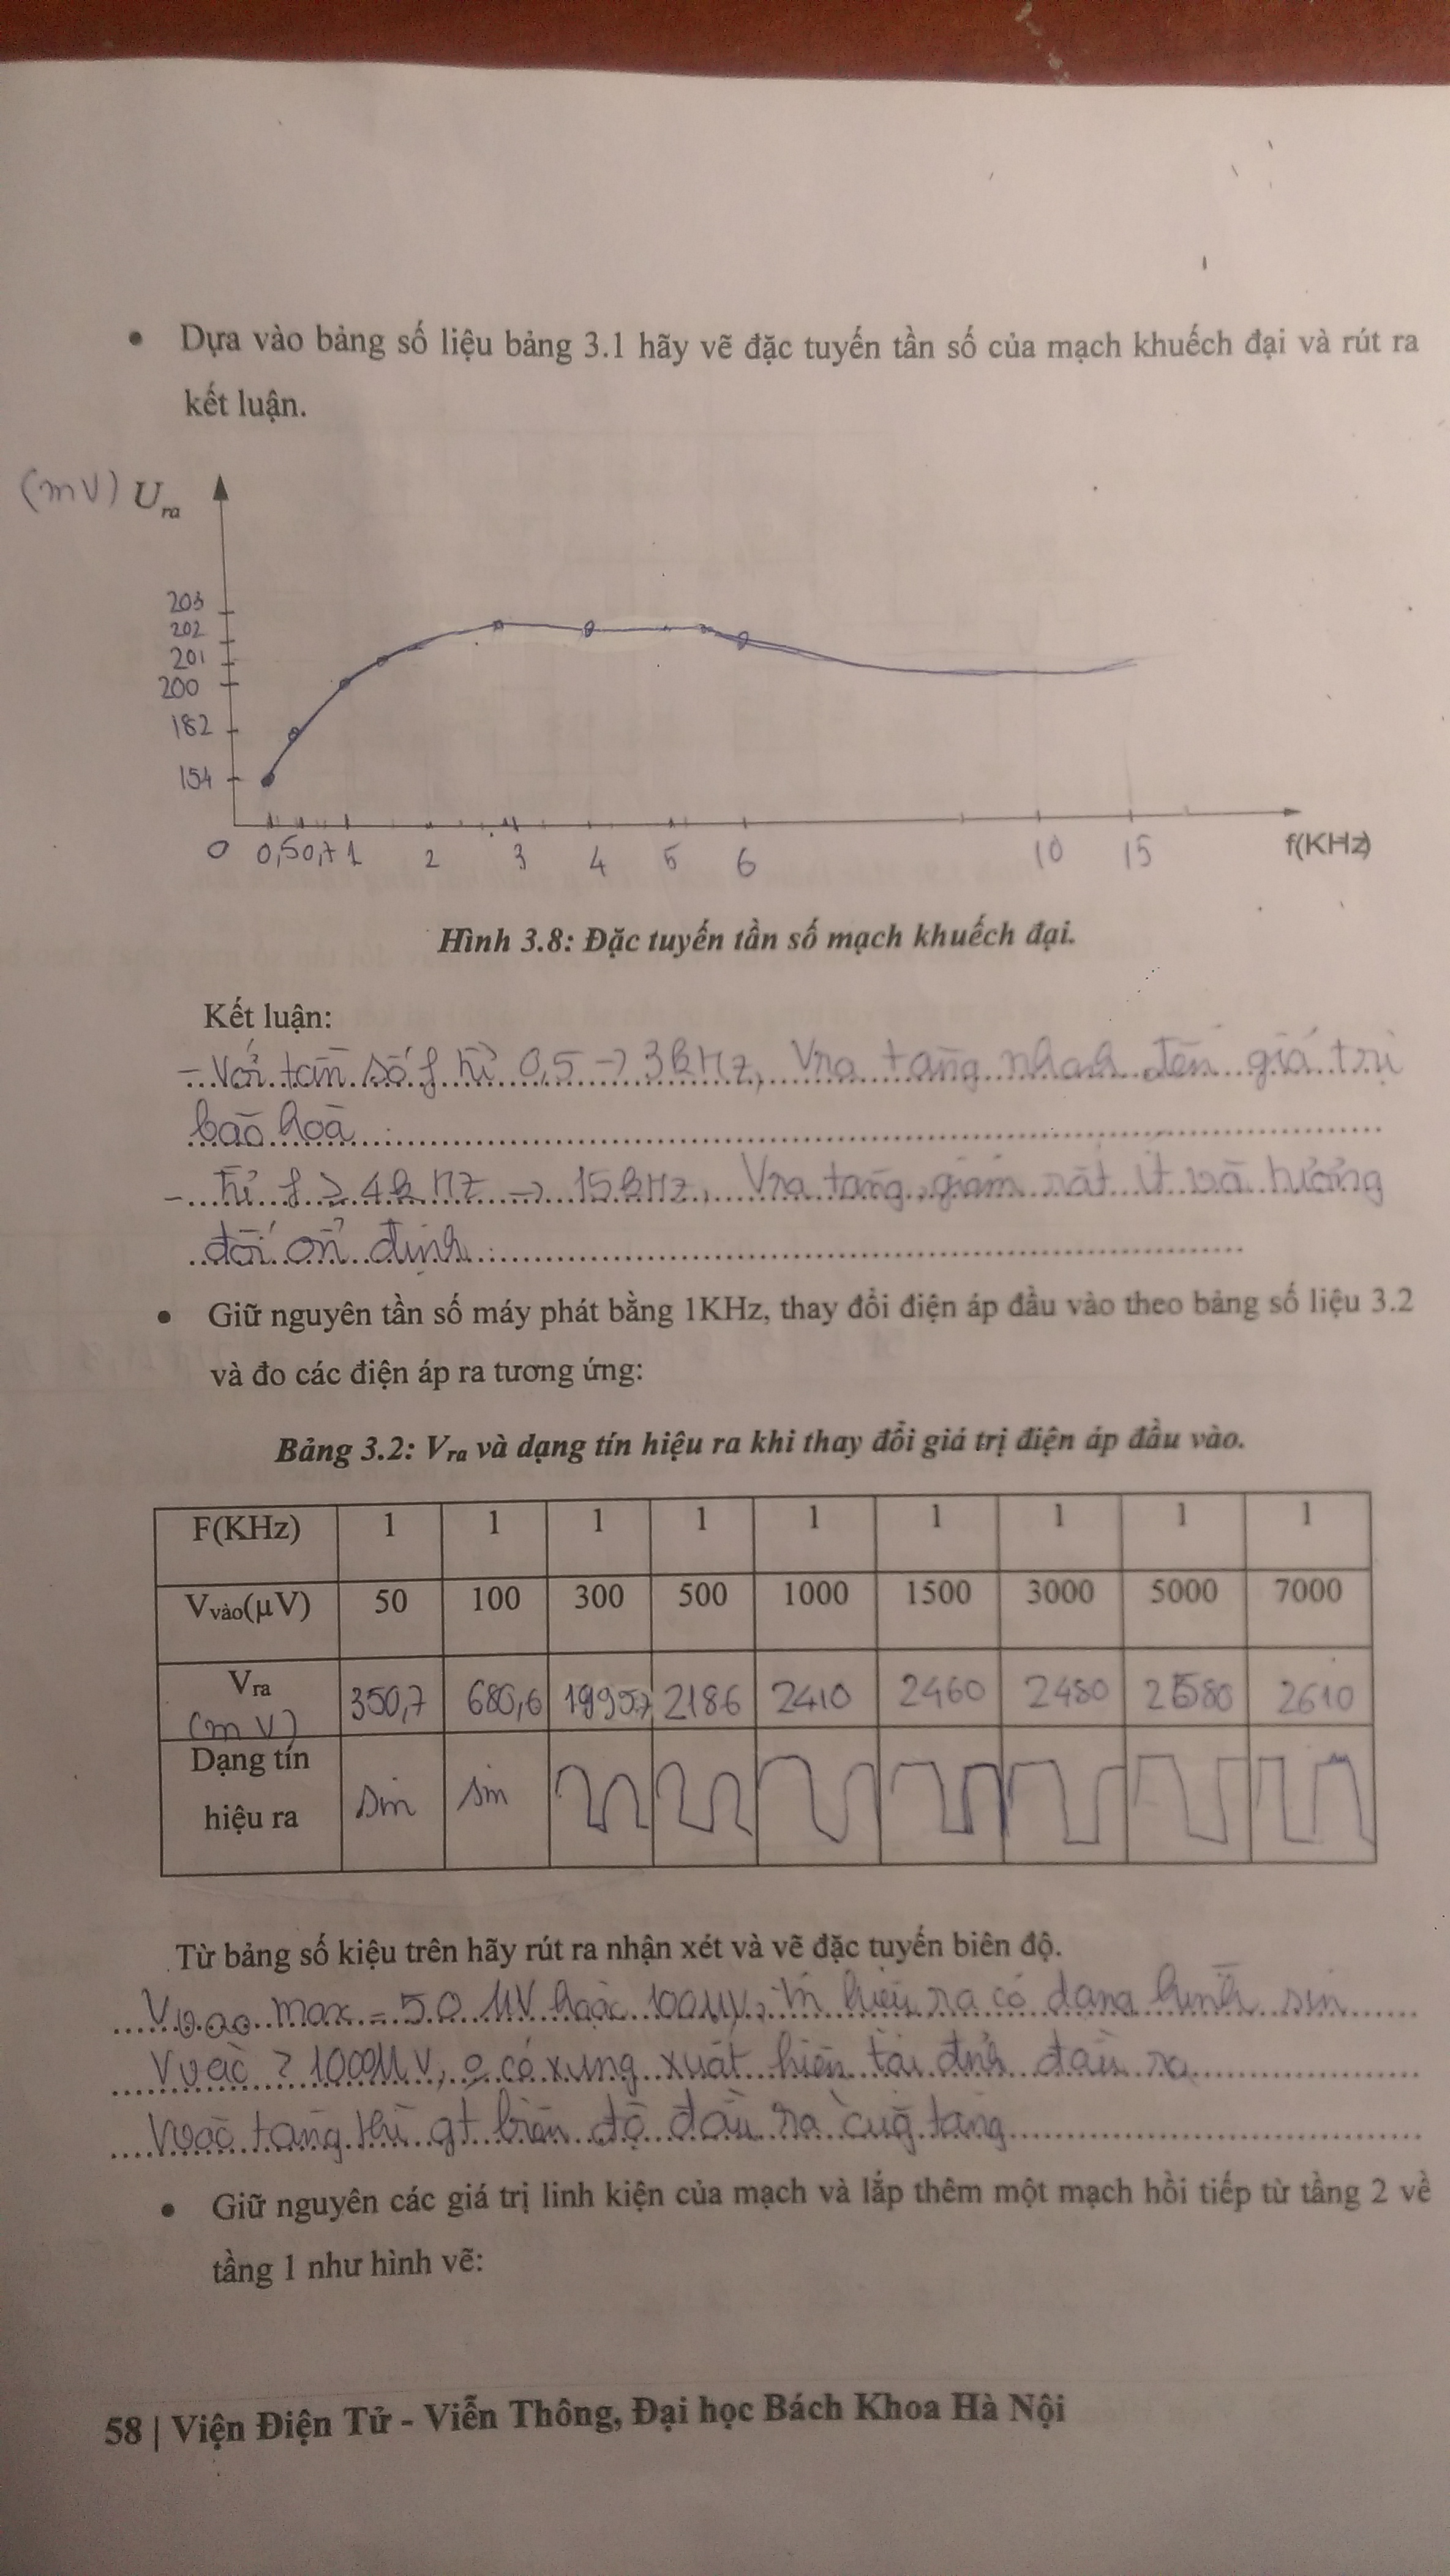 • Dựa vào bảng số liệu bảng 3.1 hãy vẽ đặc tuyến tần số của mạch khuếch đại và rút ra
kết luận.
(mV) Ura
203
202
201
200
182
154
0 0,5 0,7 1 2 3 4 5 6 10 15 f(KHz)
Hình 3.8: Đặc tuyến tần số mạch khuếch đại.
Kết luận:
- Với tần số f từ 0,5 → 3kHz, Vra tăng nhanh đến giá trị
bão hoà
- Từ f ≥ 4kHz → 15kHz, Vra tăng, giảm rất ít và tương
đối ổn định
• Giữ nguyên tần số máy phát bằng 1KHz, thay đổi điện áp đầu vào theo bảng số liệu 3.2
và đo các điện áp ra tương ứng:
Bảng 3.2: Vra và dạng tín hiệu ra khi thay đổi giá trị điện áp đầu vào.
F(KHz) 1 1 1 1 1 1 1 1 1
Vvào(μV) 50 100 300 500 1000 1500 3000 5000 7000
Vra (mV) 350,7 680,6 2186 2410 2460 2480 2580 2610
Dạng tín
hiệu ra sin sin
Từ bảng số kiệu trên hãy rút ra nhận xét và vẽ đặc tuyến biên độ.
Vvao max = 50 μV hoặc 100μV, tín hiệu ra có dạng hình sin
Vvào ≥ 1000μV, có xung xuất hiện tại đầu ra
Vvào tăng thì gt biên độ đầu ra cũg tăng
• Giữ nguyên các giá trị linh kiện của mạch và lắp thêm một mạch hồi tiếp từ tầng 2 về
tầng 1 như hình vẽ:
58 | Viện Điện Tử - Viễn Thông, Đại học Bách Khoa Hà Nội